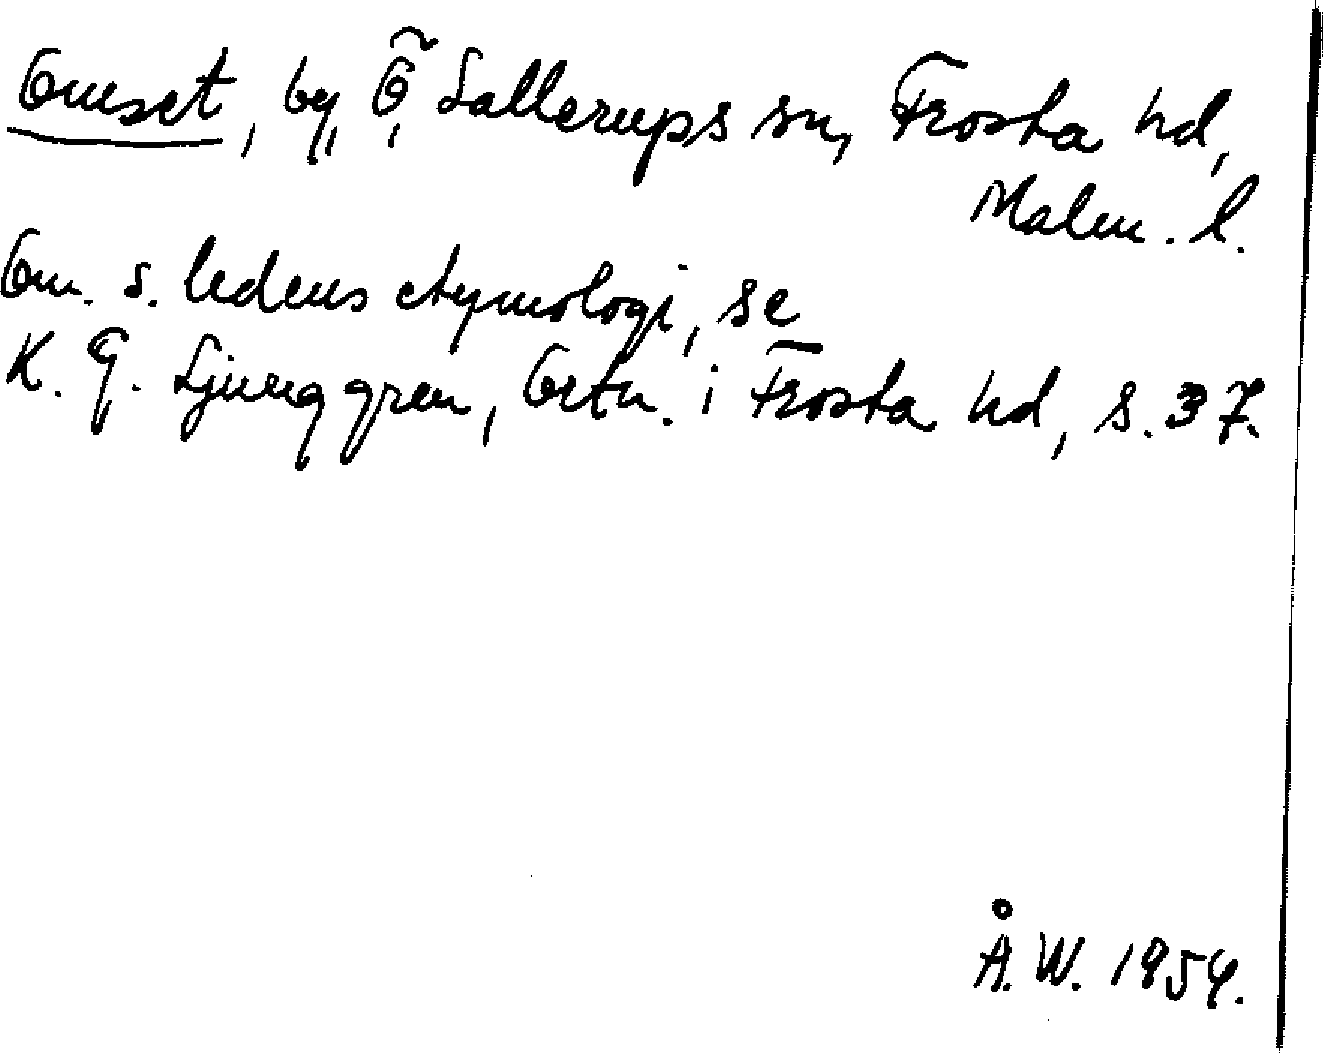 Onset, by, Ö. Sallerups sn, Frosta hd,
Malm. l.
Om s. ledens etymologi, se
K. G. Ljunggren, Ortn. i Frosta hd, s. 37.
Å. W. 1954.